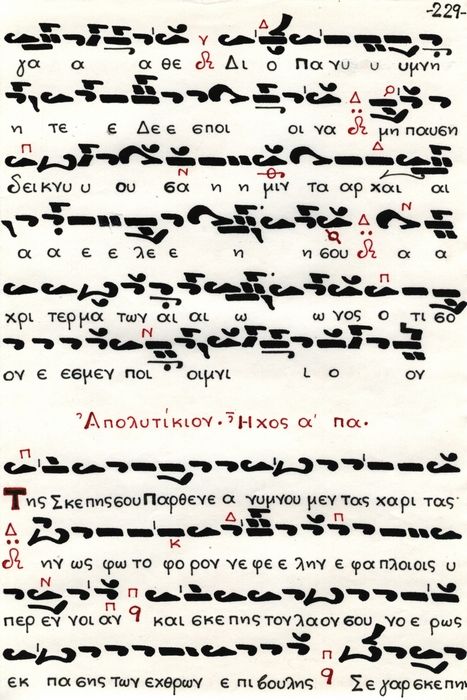 -229-
γα α α αθε Δι ο Παγυ υ υμνη
η τε ε Δεε σποι οι να μη παυση
δεικνυ υ ου σα η η μιν τα αρ χαι αι
α α ε ε λε ε η η σου α α
χρι τερμα των αι αι ω ω νος ο τι σο
ον ε εσμεν ποι οιμνι ι ο ον
Ἀπολυτίκιον. Ἦχος α΄ πα.
Της Σκεπησσου Παρθενε α νυμνουμεν τας χαριτας
ην ως φωτο φορον νε φε λην ε φαπλοιοις υ
περ εν νοι αν και σκεπης τον λαον σου νο ε ρως
εκ πασης των εχθρων ε πιβουλης Σε γαρ σκεπην